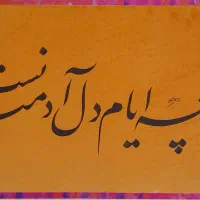 چه ایام دل آدمیانست